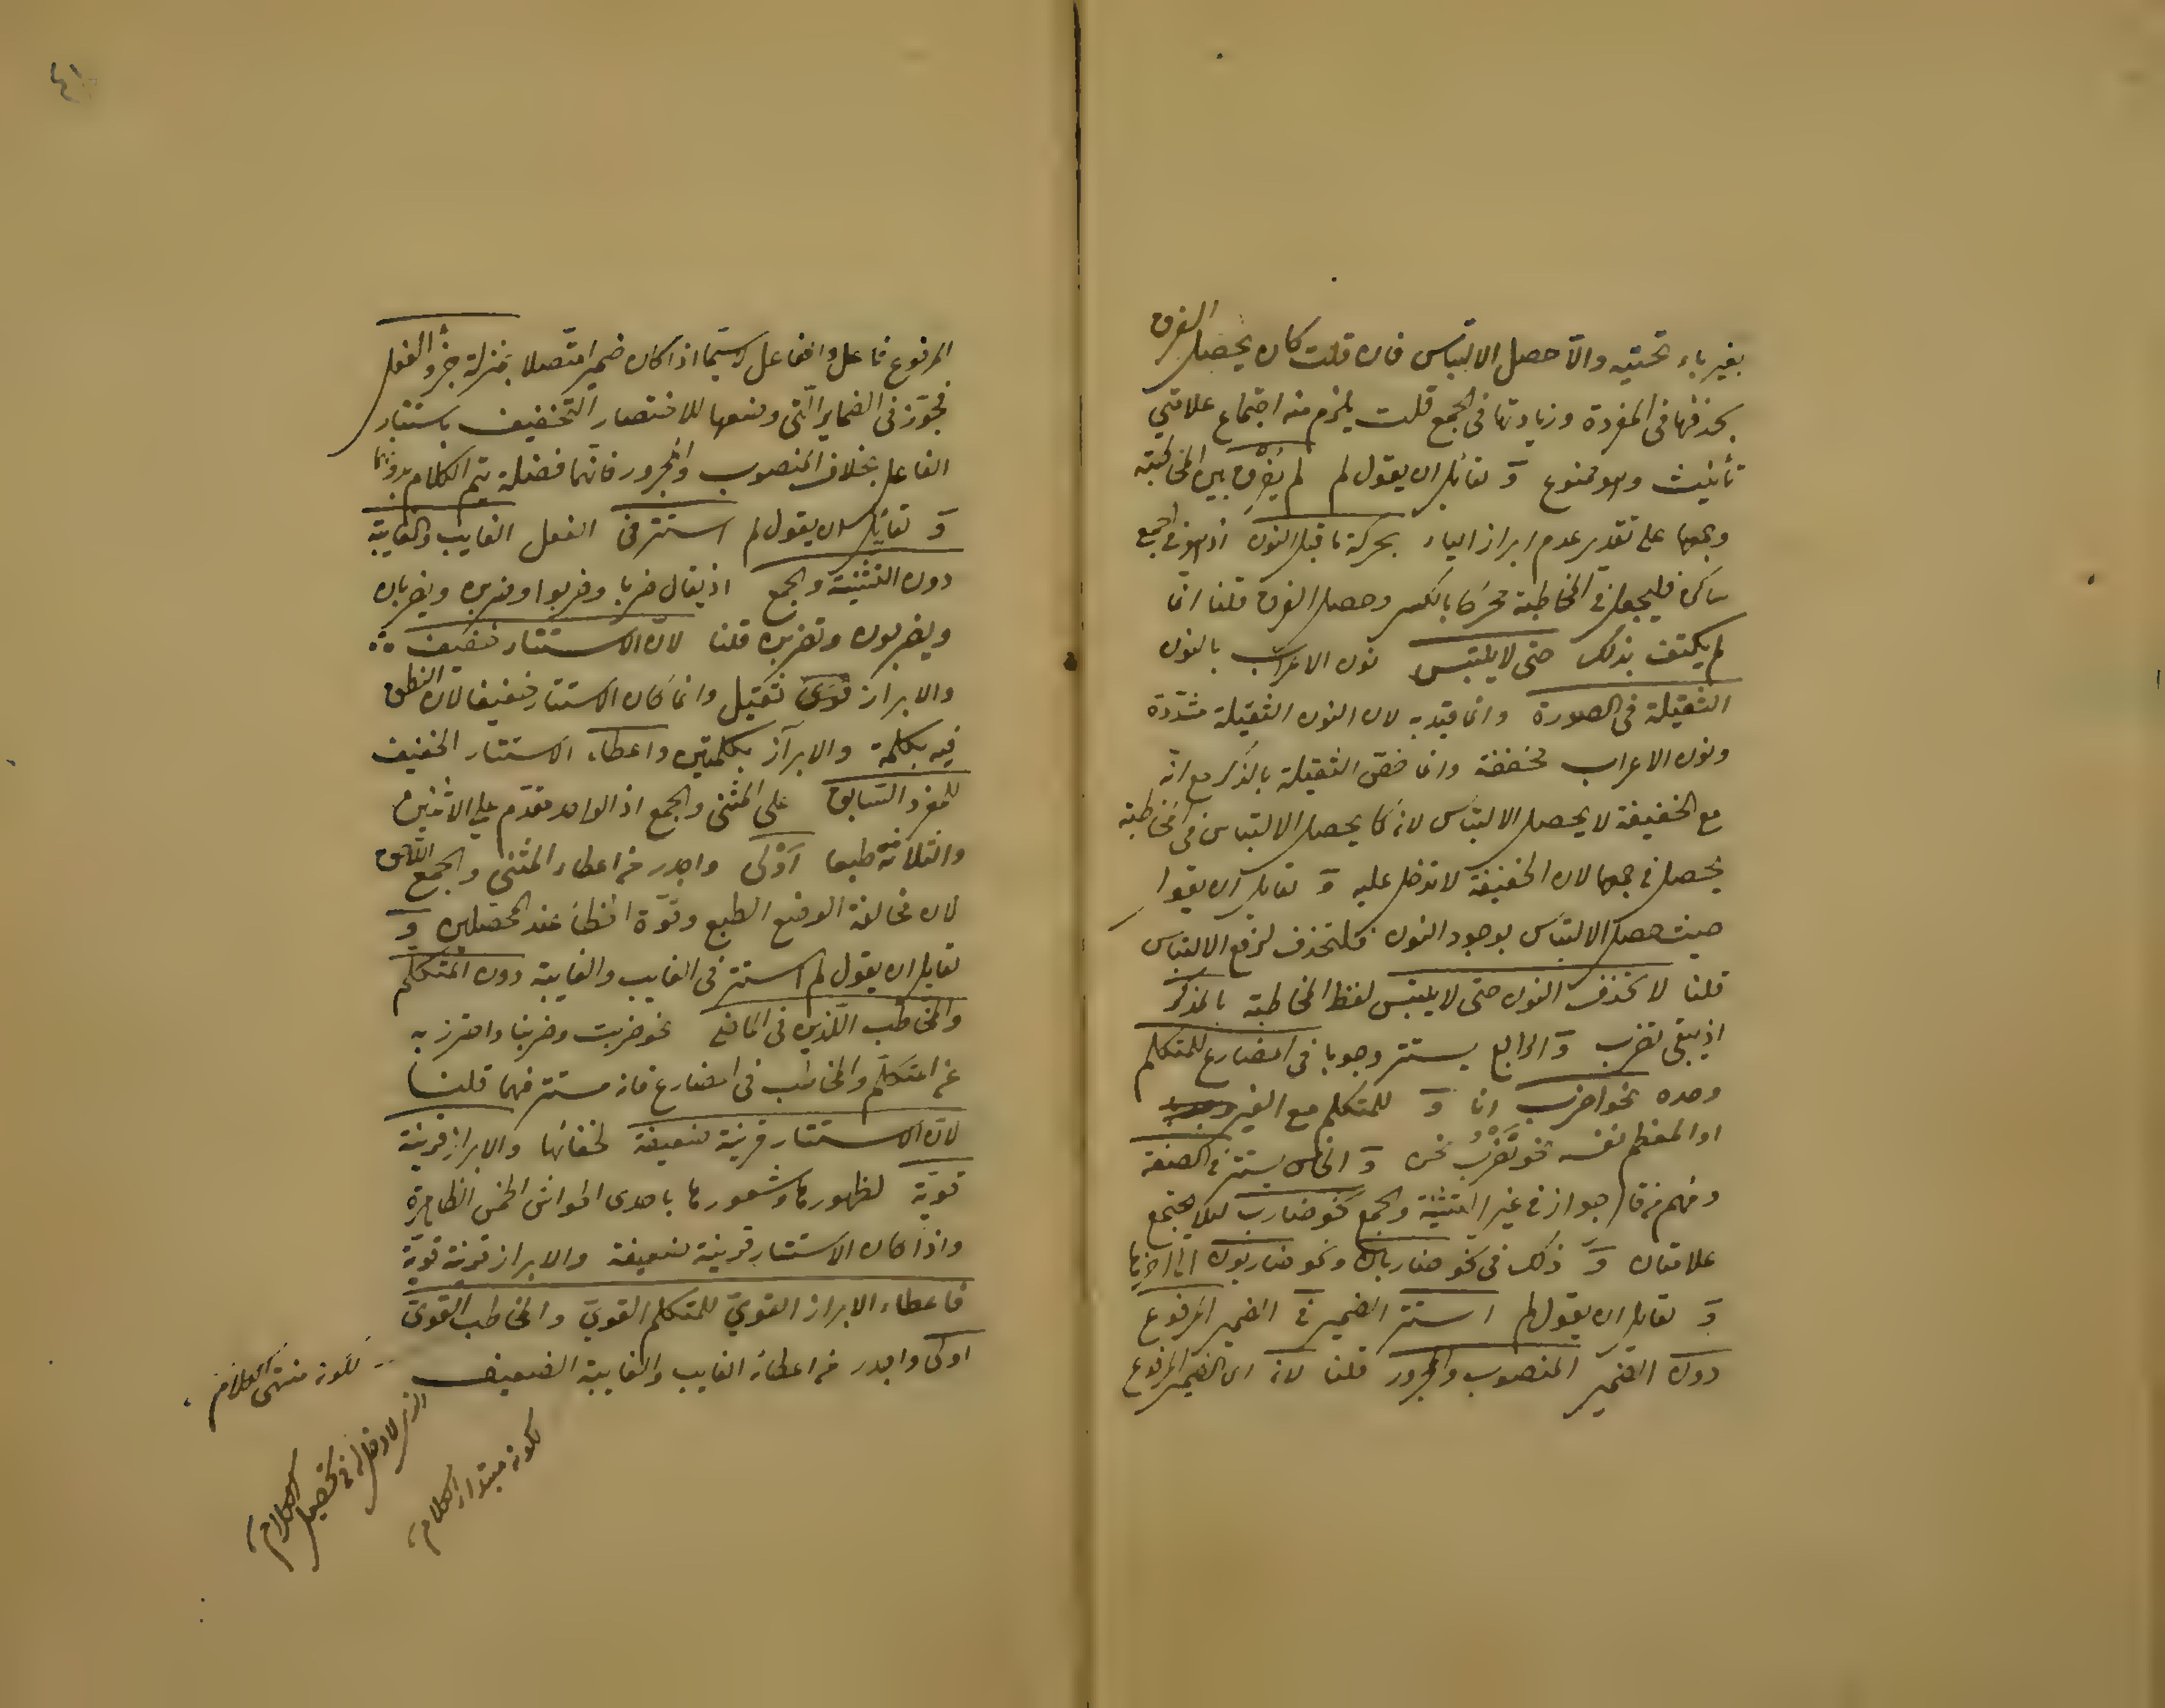 بغير ياء تحتية والا حصل الالتباس فان قلت كان يحصل الفرق
بحذفها في المفردة وزيادتها في الجمع قلت يلزم منه اجتماع علامتي
تأنيث وهو ممنوع و لقائل ان يقول لم لم يُفرق بين المخاطبة
وجمعها على تقدير عدم ابراز الياء بحركة ما قبل النون اذ هو في الجمع
ساكن فليجعل في المخاطبة محركا بالكسر وحصل الفرق قلنا انما
لم يكتف بذلك حتى لا يلتبس نون الاعراب بالنون
الثقيلة في الصورة وانما قيد به لان النون الثقيلة مشددة
ونون الاعراب مخففة وانما خص الثقيلة بالذكر مع انه
مع الخفيفة لا يحصل الالتباس لانه كما يحصل الالتباس في المخاطبة
يحصل في جمعها لان الخفيفة لا تدخل عليه و لقائل ان يقول
حيث حصل الالتباس بوجود النون فلتحذف لرفع الالتباس
قلنا لا تحذف النون حتى لا يلتبس لفظ المخاطبة بالمذكر
اذ يبقى تضرب و الرابع يستتر وجوبا في المضارع للمتكلم
وحده نحو اضرب انا و للمتكلم مع الغير
او المعظم نفسه نحو نَضْرِبُ نحن و الخامس يستتر في الصفة
جواز في غير التثنية والجمع نحو ضارب لئلا يجتمع
علامتان و ذلك في نحو ضاربان ونحو ضاربون
و لقائل ان يقول لم استتر الضمير في الضمير المرفوع
دون الضمير المنصوب والمجرور قلنا لانه اي الضمير المرفوع
المرفوع فاعل والفاعل لا سيما اذا كان ضميرا متصلا بمنزلة جزء الفعل
فجوز في الضماير التي وضعها للاختصار التخفيف باستتار
الفاعل بخلاف المنصوب والمجرور فانهما فضلة يتم الكلام بدونهما
و لقائل ان يقول لم استتر في الفعل الغايب والغايبة
دون التثنية والجمع اذ يقال ضربا وضربوا وضربن ويضربان
ويضربون وتضربن قلنا لان الاستتار خفيف
والابراز ثقيل وانما كان الاستتار خفيفا لان النطق
فيه بكلمة والابراز بكلمتين واعطاء الاستتار الخفيف
للمفرد السابق على المثنى والجمع اذ الواحد مقدم على الاثنين
والثلاثة طبعا اولى واجدر من اعطاء المثنى والجمع اللاحق
لان مخالفة الوضع الطبع وقوة الخطأ عند المحصلين و
لقائل ان يقول لم استتر في الغايب والغايبة دون المتكلم
والمخاطب اللذين في الماضي نحو ضربت وضربنا واحترز به
عن المتكلم والمخاطب في المضارع فانه مستتر فيهما قلنا
لان الاستتار قرينة ضعيفة لخفائها والابراز قرينة
قوية لظهورها وشعورها باحدى الحواس الخمس الظاهرة
واذا كان الاستتار قرينة ضعيفة والابراز قرينة قوية
فاعطاء الابراز القوي للمتكلم القوي والمخاطب القوي
اولى واجدر من اعطائه الغايب والغايبة الضعيف
لكونه منتهى الكلام
لكونه مبتدأ الكلام
الذي لا دخل له في تحصيل الكلام